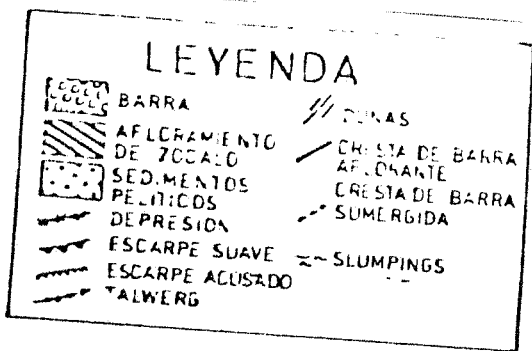 LEYENDA
BARRA
AFLORAMIENTO
DE ZOCALO
SEDIMENTOS
PELITICOS
DEPRESION
ESCARPE SUAVE
ESCARPE ACUSADO
TALWERG
DUNAS
CRESTA DE BARRA
AFLORANTE
CRESTA DE BARRA
SUMERGIDA
SLUMPINGS